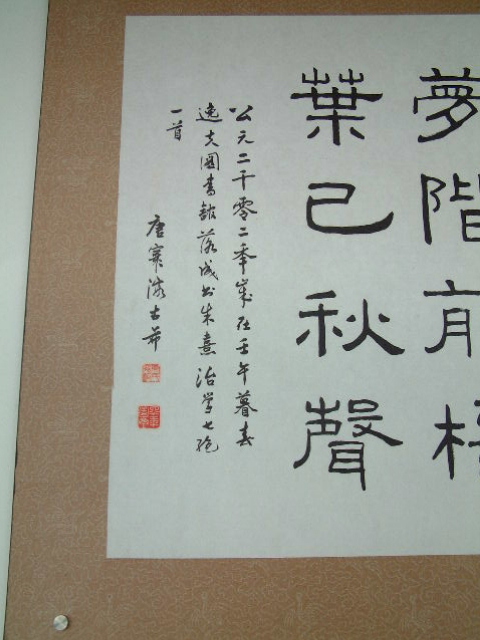 夢階前梧
葉已秋聲
公元二千零二年歲在壬午暮春
逸夫圖書館落成書朱熹治學七絕
一首
唐寒